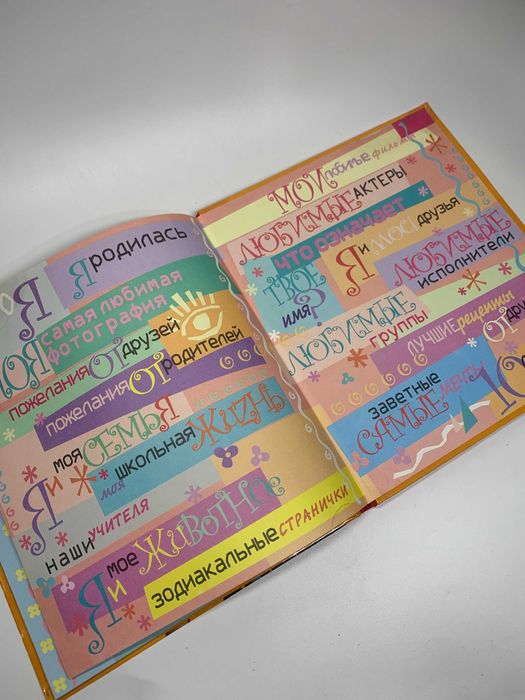 Я РОДИЛАСЬ
Я
САМАЯ ЛЮБИМАЯ
ФОТОГРАФИЯ
ПОЖЕЛАНИЯ ОТ ДРУЗЕЙ
ПОЖЕЛАНИЯ ОТ РОДИТЕЛЕЙ
Я И МОЯ СЕМЬЯ
МОЯ ШКОЛЬНАЯ ЖИЗНЬ
НАШИ УЧИТЕЛЯ
Я И МОЕ ЖИВОТНОЕ
ЗОДИАКАЛЬНЫЕ СТРАНИЧКИ
МОИ любимые фильмы
ЛЮБИМЫЕ АКТЕРЫ
ЧТО ОЗНАЧАЕТ
ТВОЕ
ИМЯ?
Я И МОИ ДРУЗЬЯ
ЛЮБИМЫЕ
ИСПОЛНИТЕЛИ
ЛЮБИМЫЕ
ГРУППЫ
ЛУЧШИЕ рецепты
ОТ
ЗАВЕТНЫЕ
САМЫЕ